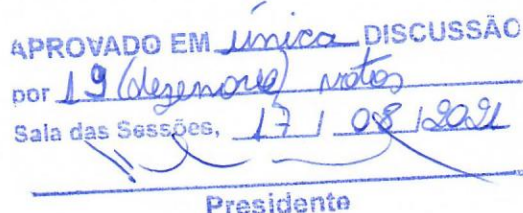 APROVADO EM única DISCUSSÃO
por 19 (dezenove) votos
Sala das Sessões, 17 / 08 / 2021
Presidente